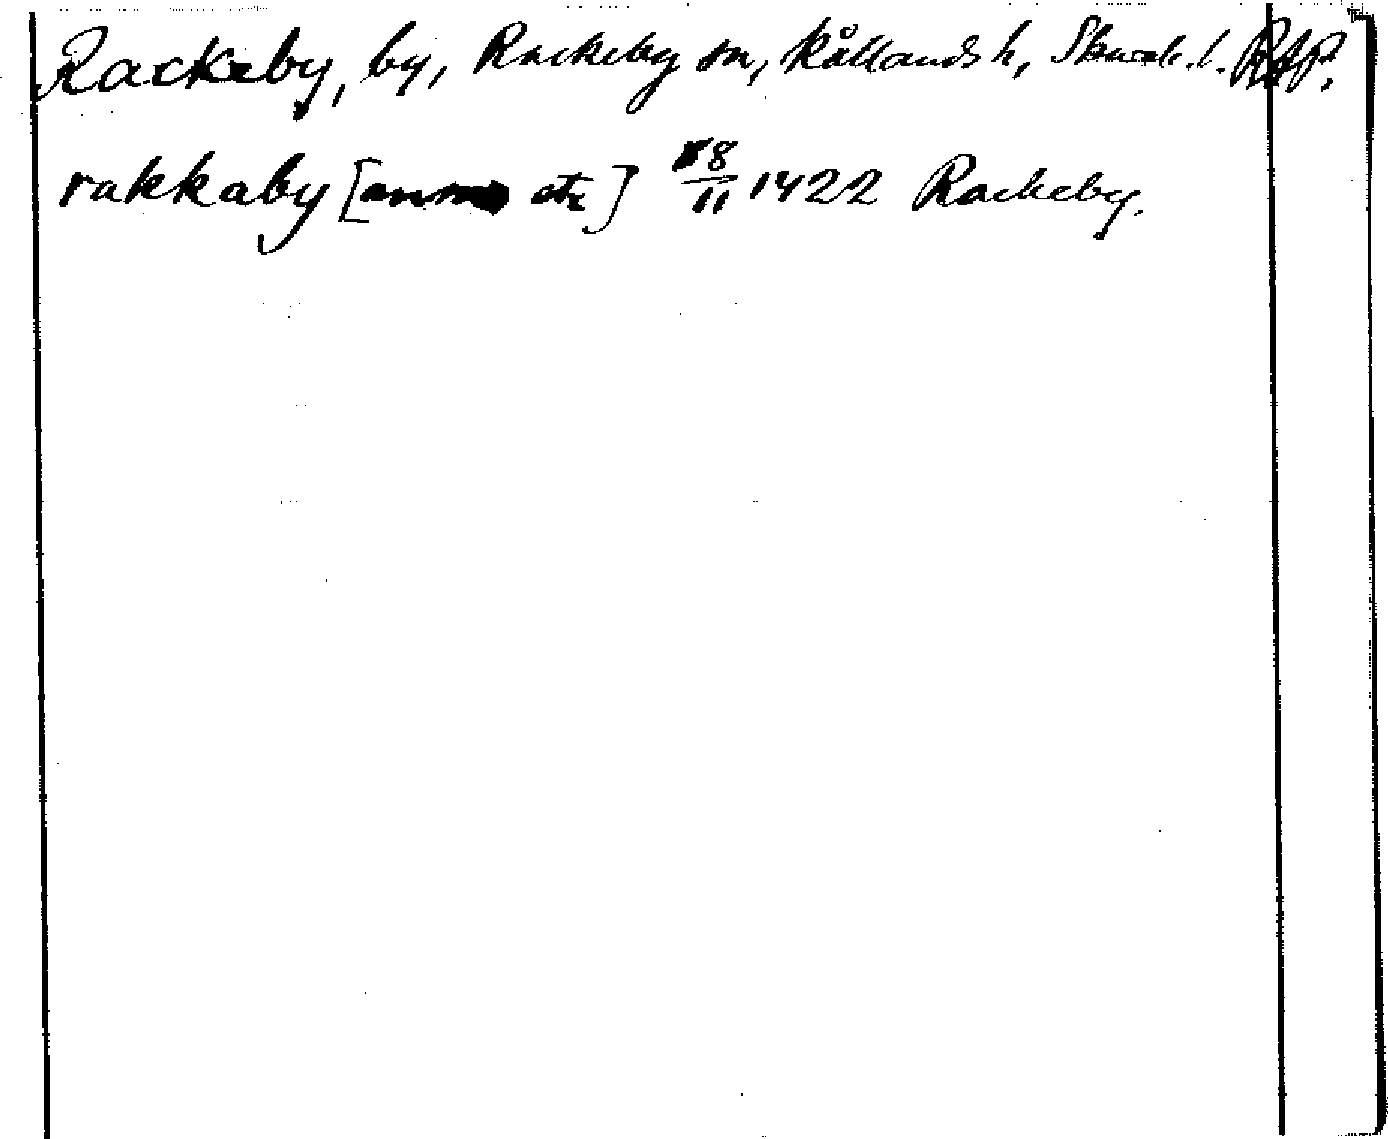 Rackeby, by, Rackeby sn, Kållands h, Skarab. l. RAp.
rakkaby [anno etc] 8/11 1422 Rackeby.